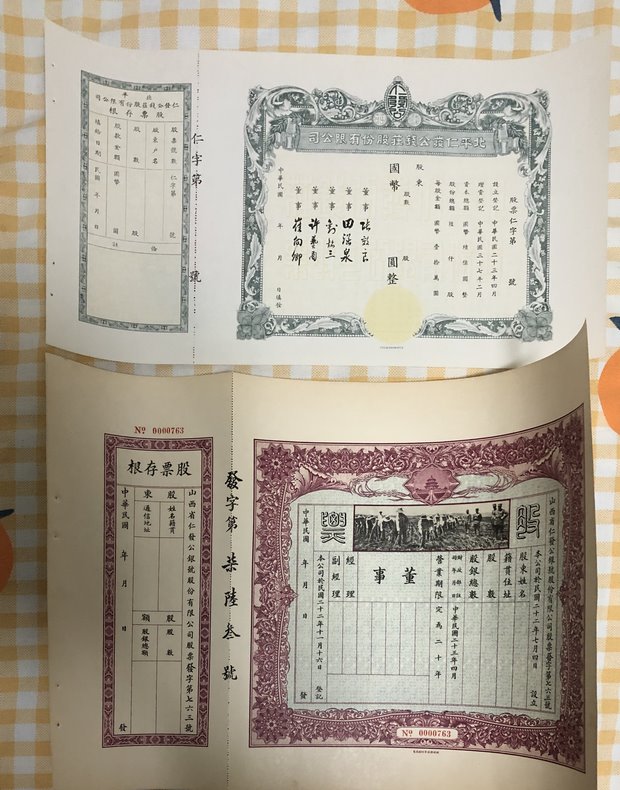 北平仁發公錢莊股份有限公司
股票仁字第　　號
設立登記　中華民國二十三年四月
增資登記　中華民國三十七年二月
資本總額　國幣積億圓整
股份總額　仟股
每股金額　國幣壹拾萬圓
股東
股數　　股
國幣　　圓整
董事
董事　田溫泉
董事
董事　許藝圃
董事　崔向卿
中華民國　年　月　日填發
仁字第　　號
北平
仁發公錢莊股份有限公司
股票存根
股票號數　仁字第　　號
股東戶名
股數　　股
股款金額　國幣　　圓
填給日期　民國　年　月　日
備註
No 0000763
股票存根
山西省仁發公銀號股份有限公司股票發字第七六三號
股東　姓名籍貫　通信地址
股額　股數　股銀總額
中華民國　年　月　日　發
發字第柒陸叁號
股票
山西省仁發公銀號股份有限公司股票發字第七六三號
本公司於民國二十二年七月四日設立
股東姓名
籍貫住址
股數
股銀總數
中華民國二十三年四月
營業期限　定為二十年
董事
經理
副經理
本公司於民國二十二年十一月十六日登記
中華民國　年　月　日　發
No 0000763